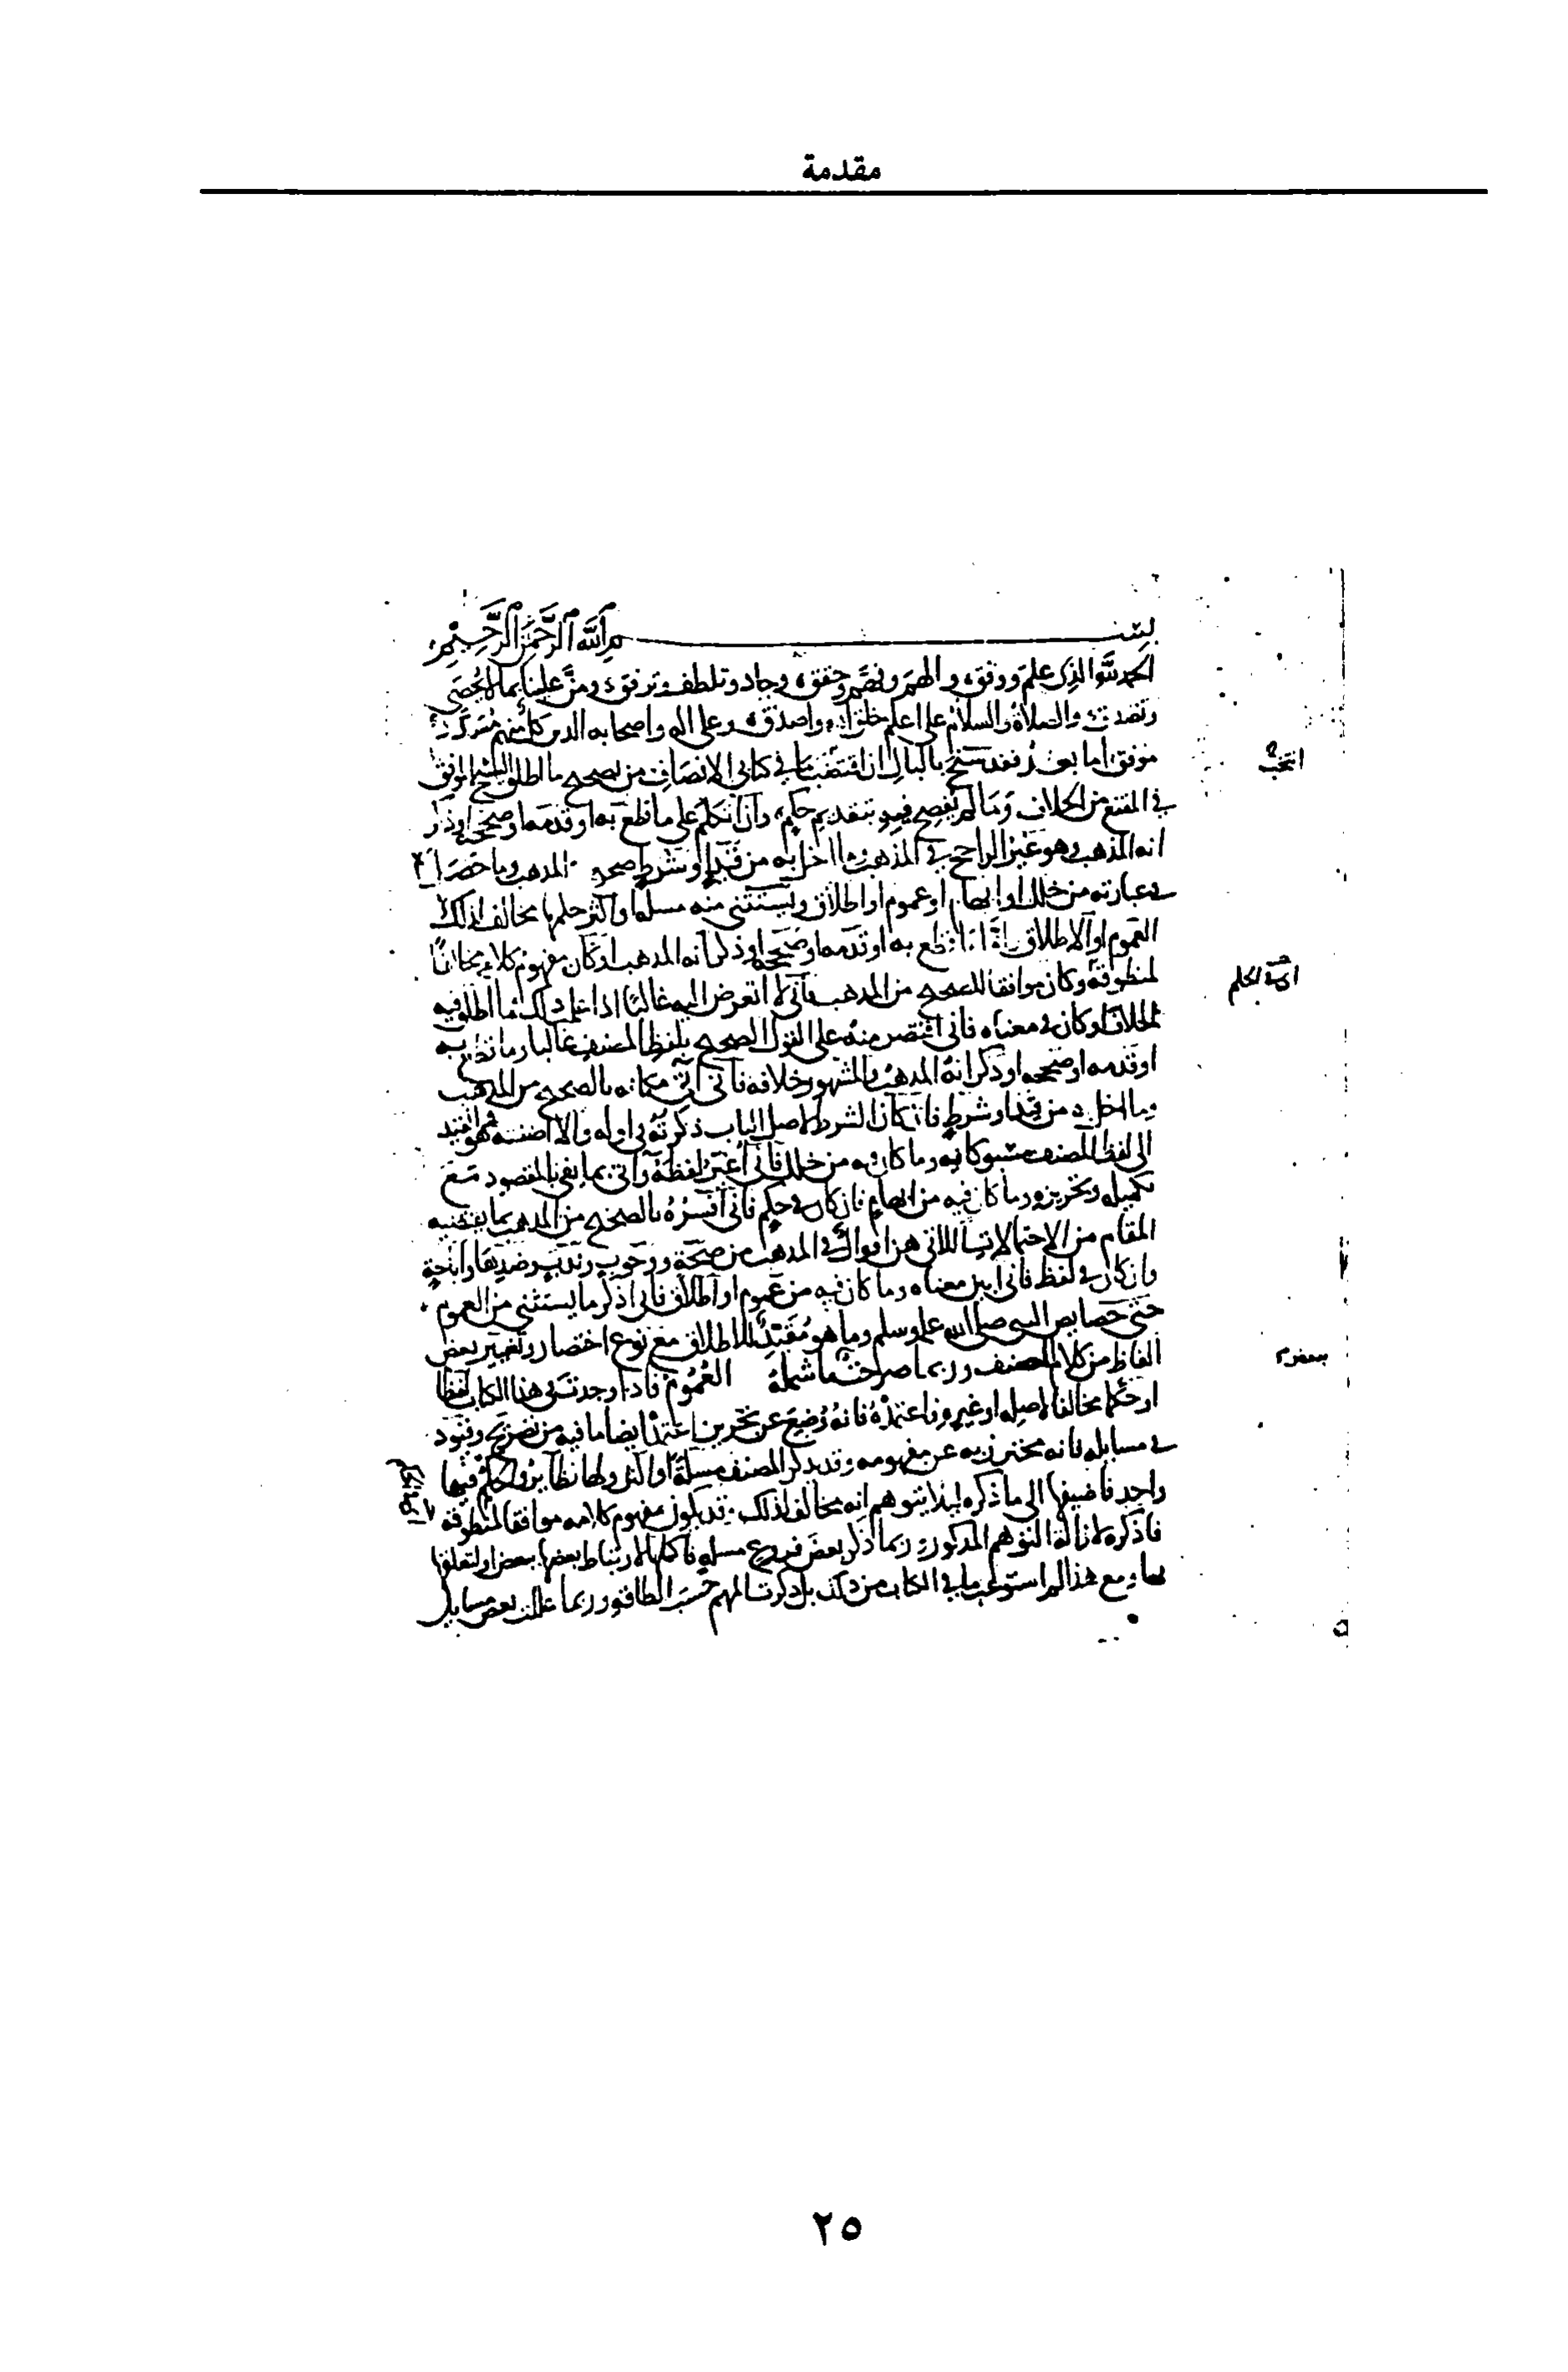 مقدمة
بسم الله الرحمن الرحيم
الحمد لله الذي علم ووفق والهم وفهم وحقق وجاد وتلطف وترفق ومن علينا بما لا يحصى
والصلاة والسلام على اعلم خلق الله واصدق وعلى اله واصحابه الذين كل منهم
موفق اما بعد فقد سنح بالبال ان اقتضب ما في كتابي الانصاف من تصحيح ما اطلق الشيخ الموفق
في المقنع من الخلاف وما لم يفصح فيه بتقديم حكم وان اتكلم على ما قطع به او قدمه او صححه او ذكر
انه المذهب وهو غير الراجح في المذهب وما اخل به من قيد او شرط صحح المذهب وما حصل
في عبارته من خلل او ابهام او عموم او اطلاق ويستثنى منه مسلة او اكثر حكمها مخالف لذلك
العموم او الاطلاق قطع به او قدمه او صححه او ذكر انه المذهب او كان مفهوم كلامه مخالفا
لمنطوقه وكان موافقا للصحيح من المذهب فاني لا اتعرض اليه غالبا اذا علم ذلك فما اطلق فيه
الخلاف او كان في معناه فاني اقتصر منه على القول الصحيح بلفظ المصنف غالبا وما قطع به
او قدمه او صححه او ذكر انه المذهب والمشهور خلافه فاني اتي مكانه بالصحيح من المذهب
وما اخل به من قيد او شرط فان كان الشرط لاصل الباب ذكرته في اوله والا اضفته
الى لفظ المصنف مسبوكا به وما كان فيه من خلل فاني اغير لفظه واتي بما يفي بالمقصود مع
تكميله وتحريره وما كان فيه من ابهام فان كان في حكم فاني افسره بالصحيح من المذهب بما يقتضيه
المقام من الاحتمالات اللاتي هن اقوال في المذهب من صحة ووجوب وندب وضديها واباحة
وان كان في لفظ فاني ابين معناه وما كان فيه من عموم او اطلاق فاني اذكر ما يستثنى من العموم
حتى خصايص النبي صلى الله عليه وسلم وما هو مقيد للاطلاق مع نوع اختصار وتغيير بعض
الفاظ من كلام المصنف وربما صرحت بما شمله العموم فاذا وجدت في هذا الكتاب لفظا
او حكما مخالفا لاصله او غيره فاعتمده فانه وضع عن تحرير واعتمد ايضا ما فيه من تصريح وقيود
في مسايله فانه محترز به عن مفهومه وقد يذكر المصنف مسلة او اكثر ولها نظاير والحكم فيها
واحد فاضيفها الى ما ذكره ليلا يتوهم انه مخالف لذلك وقد يكون مفهوم كلامه موافقا لمنطوقه
فاذكره لازالة التوهم المذكور وربما ذكر بعض فروع مسلة فاكملها لارتباط بعضها ببعض او لتعلقها
بها ومع هذا لم استوعب ما في الكتاب من ذلك بل ذكرت المهم حسب الطاقة وربما عللت بعض مسايل
٢٥